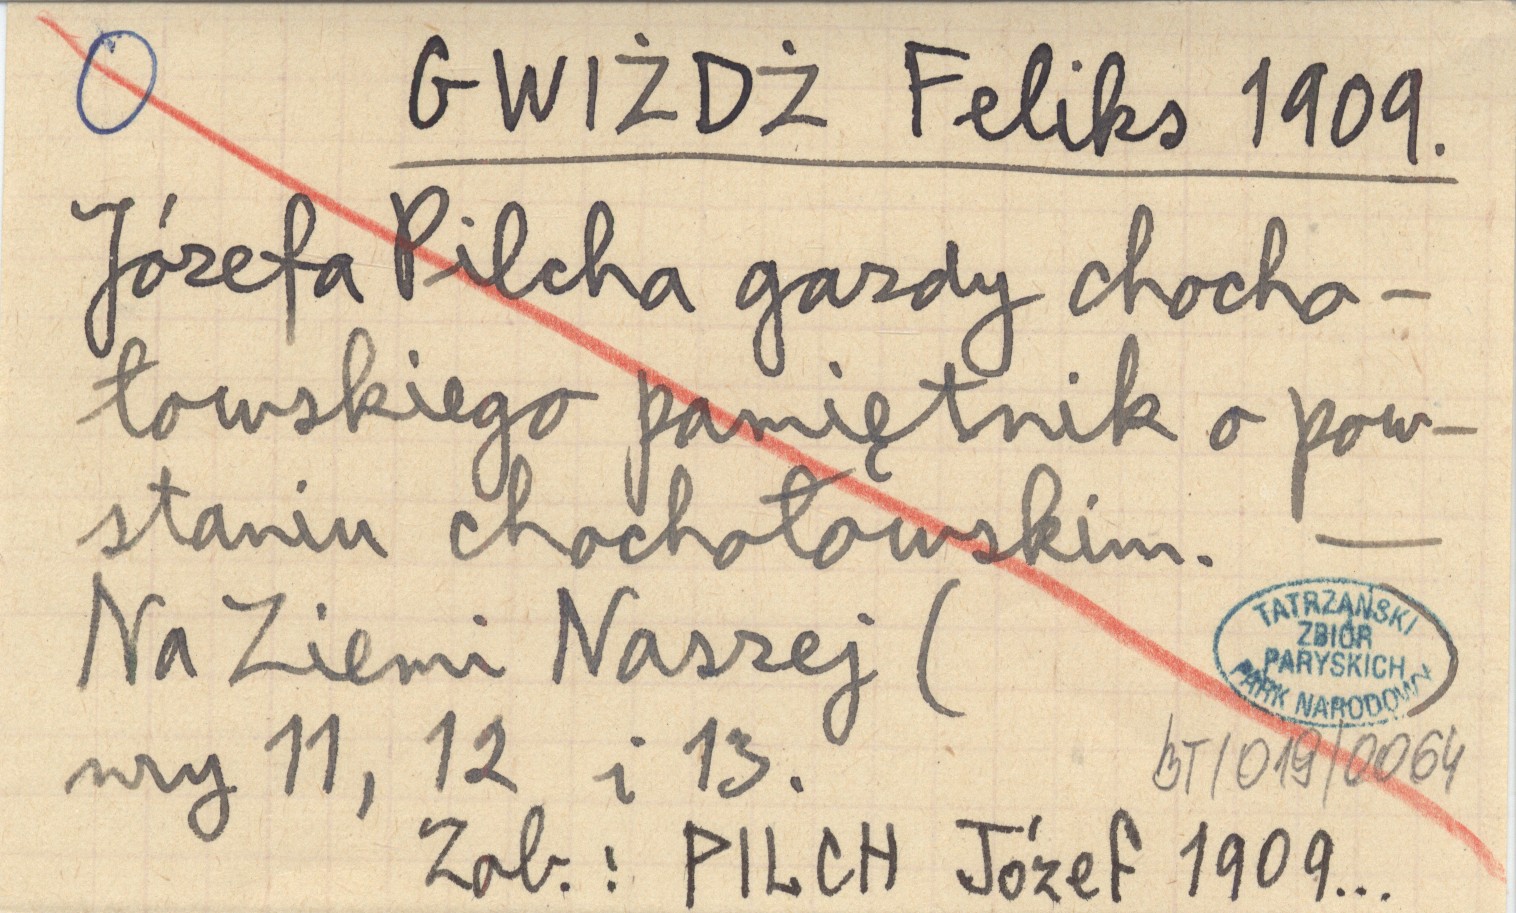 GWIŻDŻ Feliks 1909.
Józefa Pilcha gazdy chocho-
łowskiego pamiętnik o pow-
staniu chochołowskim. —
Na Ziemi Naszej (
nry 11, 12 i 13.
TATRZAŃSKI
ZBIÓR
PARYSKICH
PARK NARODOWY
BT/019/0064
Zob.: PILCH Józef 1909...